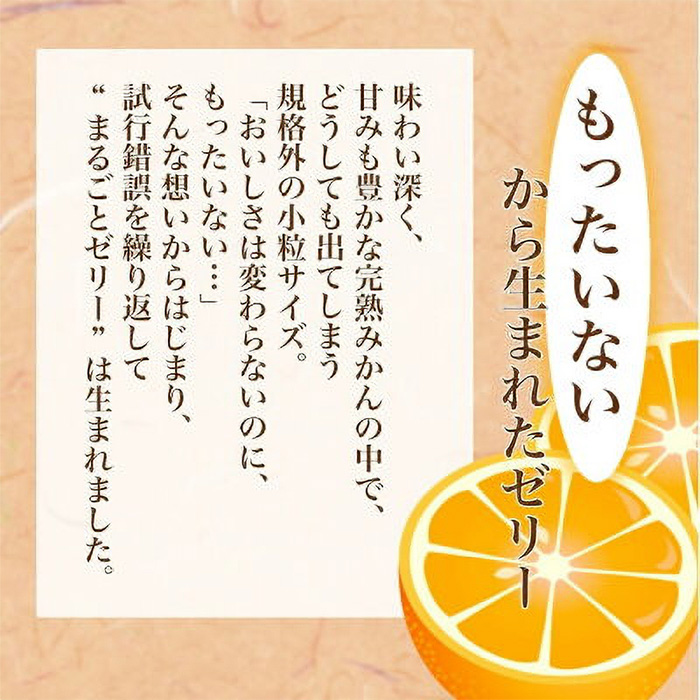 もったいない
から生まれたゼリー
味わい深く、
甘みも豊かな完熟みかんの中で、
どうしても出てしまう
規格外の小粒サイズ。
「おいしさは変わらないのに、
もったいない…」
そんな想いからはじまり、
試行錯誤を繰り返して
“まるごとゼリー”は生まれました。